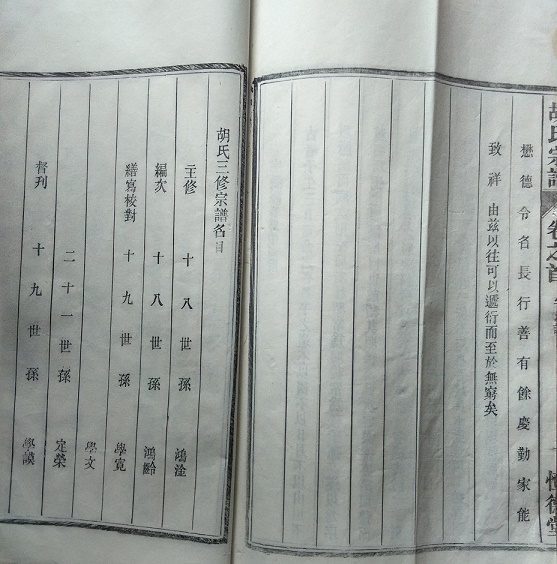 胡氏宗譜 卷之首
懋德令名長行善有餘慶勤家能
致祥 由茲以往可以遞衍而至於無窮矣
胡氏三修宗譜名目
主修 十八世孫 鴻淦
編次 十八世孫 鴻齡
繕寫校對 十九世孫 學寬
學文
二十一世孫 定榮
督刋 十九世孫 學謨